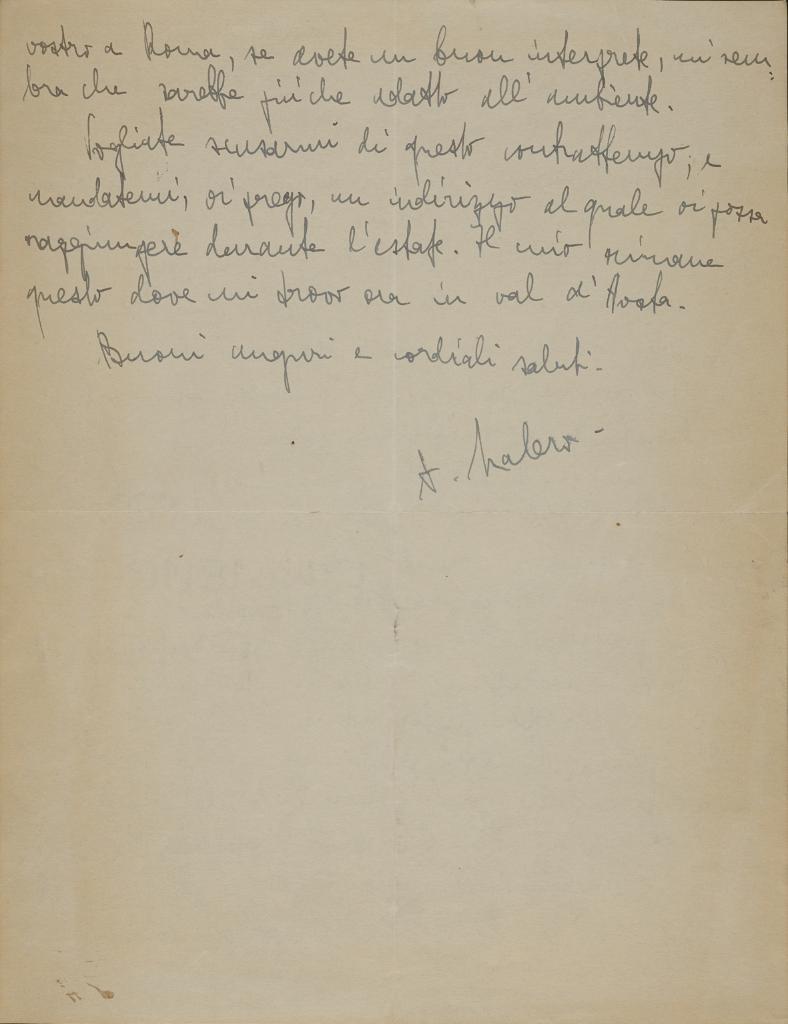 vostro a Roma, se avete un buon interprete, mi sem:
bra che sarebbe più che adatto all'ambiente.
Vogliate scusarmi di questo contrattempo, e
mandatemi, vi prego, un indirizzo al quale vi possa
raggiungere durante l'estate. Il mio rimane
questo dove mi trovo ora in val d'Aosta.
Buoni auguri e cordiali saluti.
A.